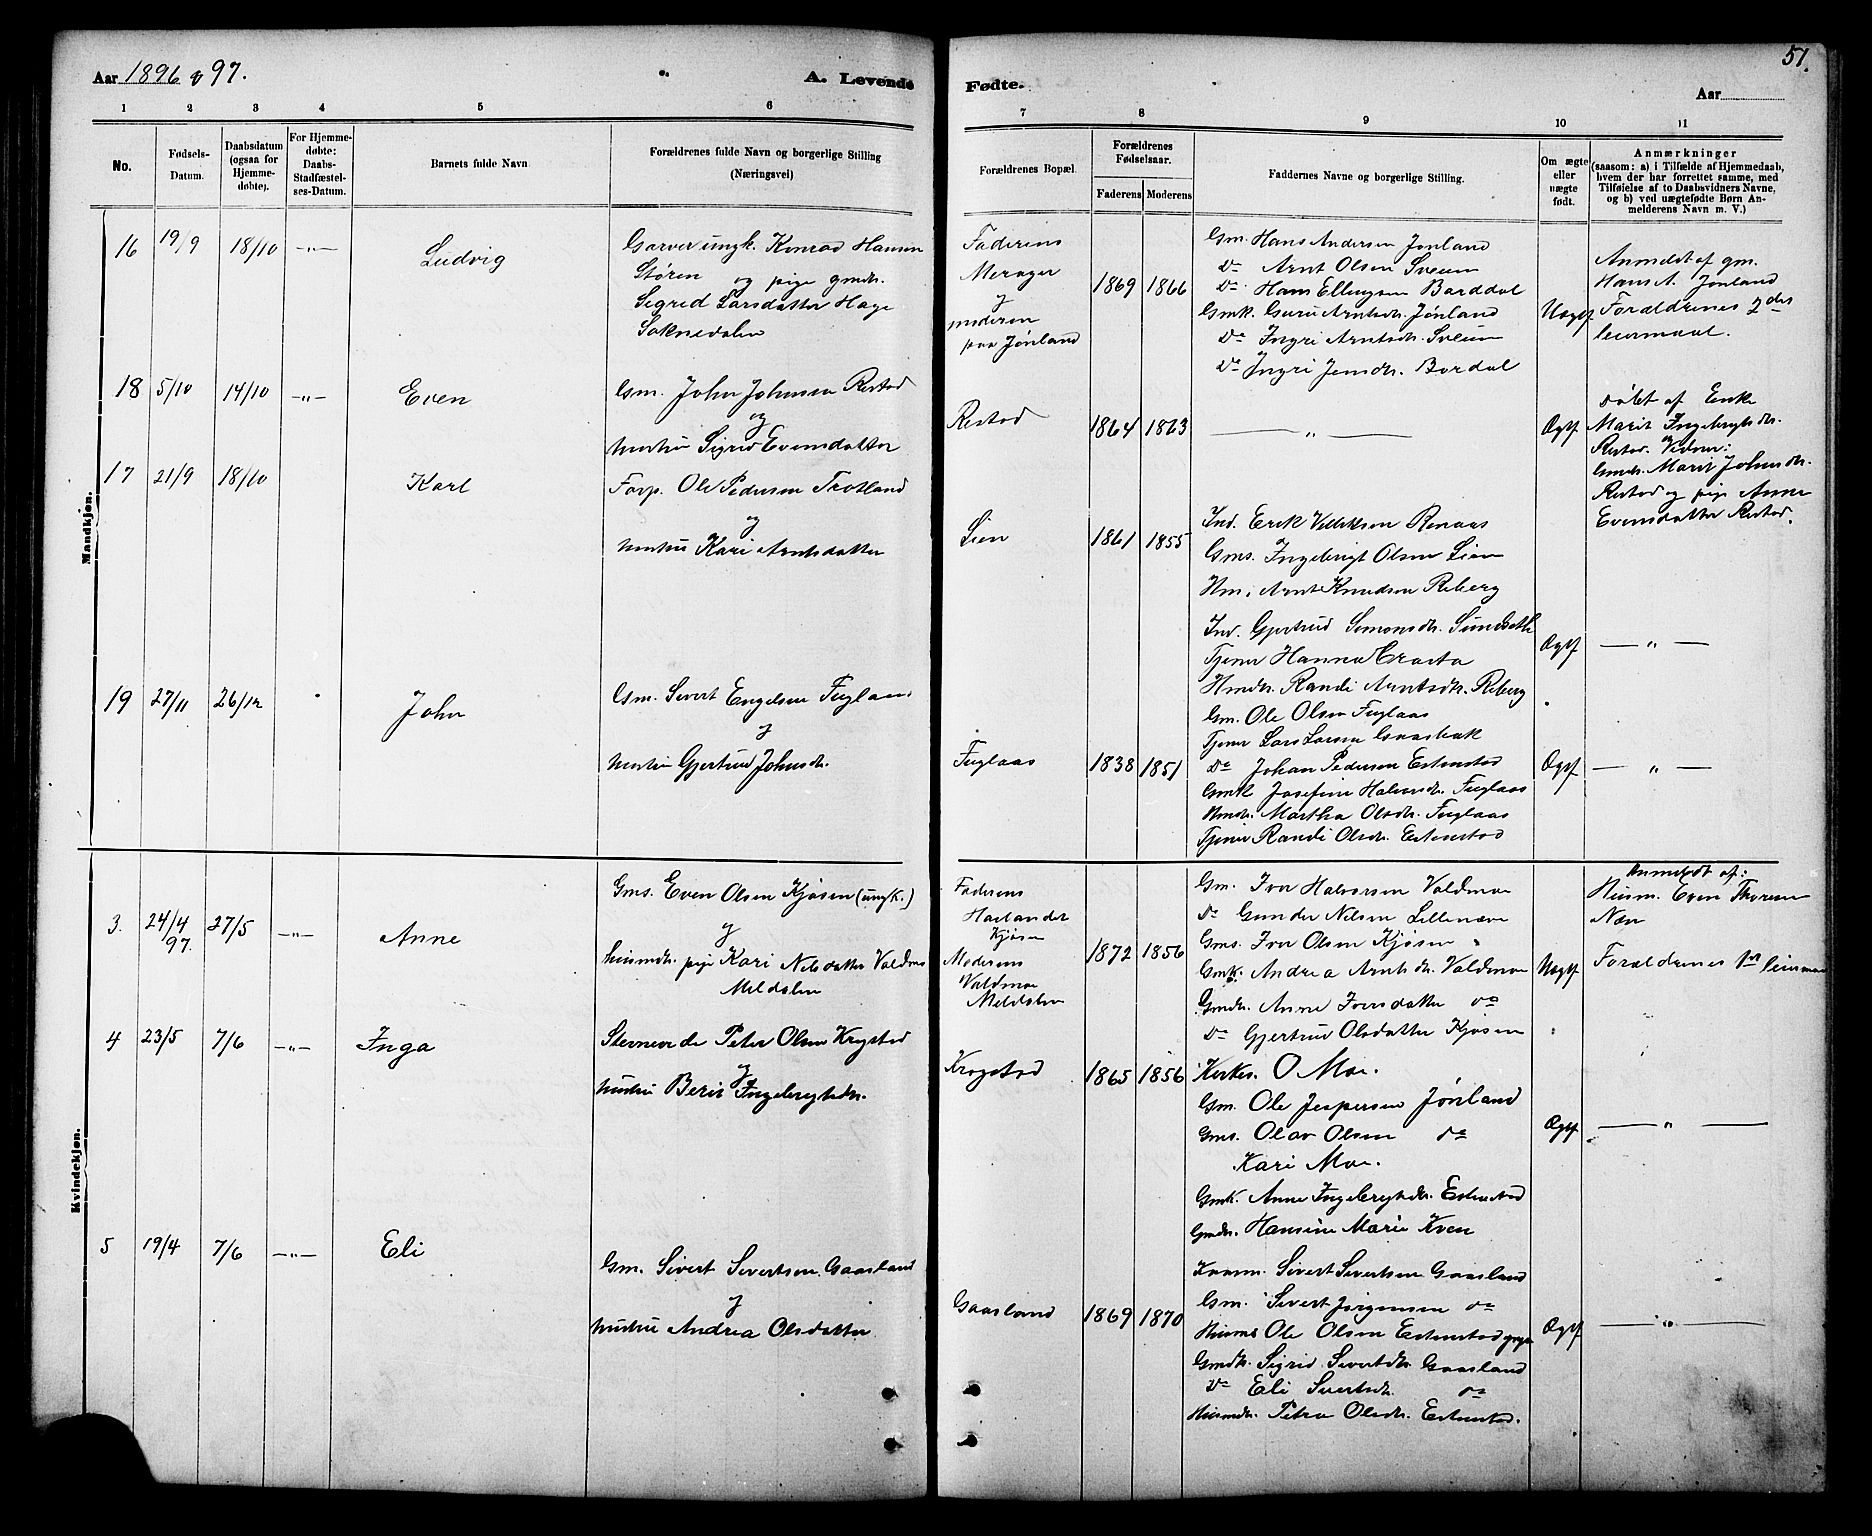 Aar 1896 & 97.
A. Levende
1 2 3 4 5 6
No.
Fødsels-
Datum.
Daabsdatum
(ogsaa for
Hjemme-
døbte).
For Hjemme-
døbte:
Daabs-
Stadfæstel-
ses-Datum.
Barnets fulde Navn
Forældrenes fulde Navn og borgerlige Stilling
(Næringsvei)
Mandkjøn.
16 19/9 18/10 —"— Ludvig
Garver ungk. Konrad Hansen
Støren og pige gmdr.
Sigrid Larsdatter Hage
Soknedalen
18 5/10 14/10 —"— Even
Gm. John Johnsen Restad
og
Hustru Sigrid Evensdatter
17 21/9 18/10 Karl
Forp. Ole Pedersen Trotland
og
Hustru Kari Arntsdatter
19 27/11 26/12 John
Gm. Sivert Engelsen Fuglaas
og
Hustru Gjertrud Johnsdr.
Kvindekjøn.
3. 24/4 97. 27/5 —"— Anne
Gms. Even Olsen Kjøsen (ungk.)
og
Husmdr. pige Kari Nilsdatter Valdmo
Meldalen
4 23/5 7/6 —"— Inga
Peter Olsen Krogstad
og
Hustru Berit Ingebrigtsdr.
5 19/4 7/6 —"— Eli
Gm. Sivert Sivertsen Gaasland
og
Hustru Andrea Olsdatter
51.
Fødte.
Aar
7 8 9 10 11
Forældrenes Bopæl.
Forældrenes
Fødselsaar.
Faderens Moderens
Faddernes Navne og borgerlige Stilling.
Om ægte
eller
uægte
født.
Anmærkninger
(saasom: a) i Tilfælde af Hjemmedaab,
hvem der har forrettet samme, med
Tilføielse af to Daabsvidners Navne,
og b) ved uægtefødte Børn An-
melderens Navn m. V.)
Faderens
Merager
og
moderen
paa Jønland
1869 1866
Gm. Hans Andersen Jønland
Do Arnt Olsen Sveum
Do Hans Ellingsen Barddal
Gmk. Guru Arntsdr. Jønland
Do Ingri Arntsdr. Sveum
Do Ingri Jensdr. Bordal
Uægte
Anmeldt af gm.
Hans A. Jønland
Forældrenes 2des
leiermaal.
Restad
1864 1863
— " —
Ægte
Døbt af Enke
Marit Ingebrigtsdr.
Restad. Vidner:
Gmdr. Marit Johnsdr.
Restad og pige Anne
Evensdatter Restad.
Lien
1861 1855
Ind. Erik Renaas
Gms. Ingebrigt Olsen Lien
Hm. Arnt Knudsen Reberg
Ind. Gjertrud Simonsdr.
Tjener Hanna
Hmdr. Randi Arntsdr. Reberg
Ægte
— " —
Fuglaas
1838 1851
Gm. Ole Olsen Fuglaas
Tjener Lars Larsen Gaasbak
Do Johan Pedersen Estenstad
Gmk Josefine Halvorsdr. Fuglaas
Hmdr. Martha Olsdr. Fuglaas
Tjener Randi Olsdr. Estenstad
Ægte
— " —
Faderens
Horlander
Kjøsen
Moderens
Valdmoe
Meldalen
1872 1856
Gm. Iver Halvorsen Valdmoe
Do Gunder Nilsen Lillenæve
Gms. Iver Olsen Kjøsen
Gmk. Andrea Arntsdr. Valdmoe
Gmdr. Anne Iversdatter do
Do Gjertrud Olsdatter Kjøsen
Uægte
Anmeldt af:
Husm. Even Thoresen
Næv
Forældrenes 1ste leiermaal
Krogstad
1865 1856
Kirkes. O Moe.
Gm. Ole Jespersen Jønland
Gms. Olav Olsen do
Kari Moe.
Gmk. Anne Ingebrigtsdr. Estenstad
Gmdr. Hansine Marie Kven
Ægte
— " —
Gaasland
1869 1870
Sivert Sivertsen Gaasland
Gm. Sivert Jørgensen do
Husms Ole Olsen Estenstad
Gmdr. Sigrid Sivertsdr. Gaasland
Do Eli Sivertsdr. do
Husmdr. Petra Olsdr. Estenstad.
Ægte
— " —